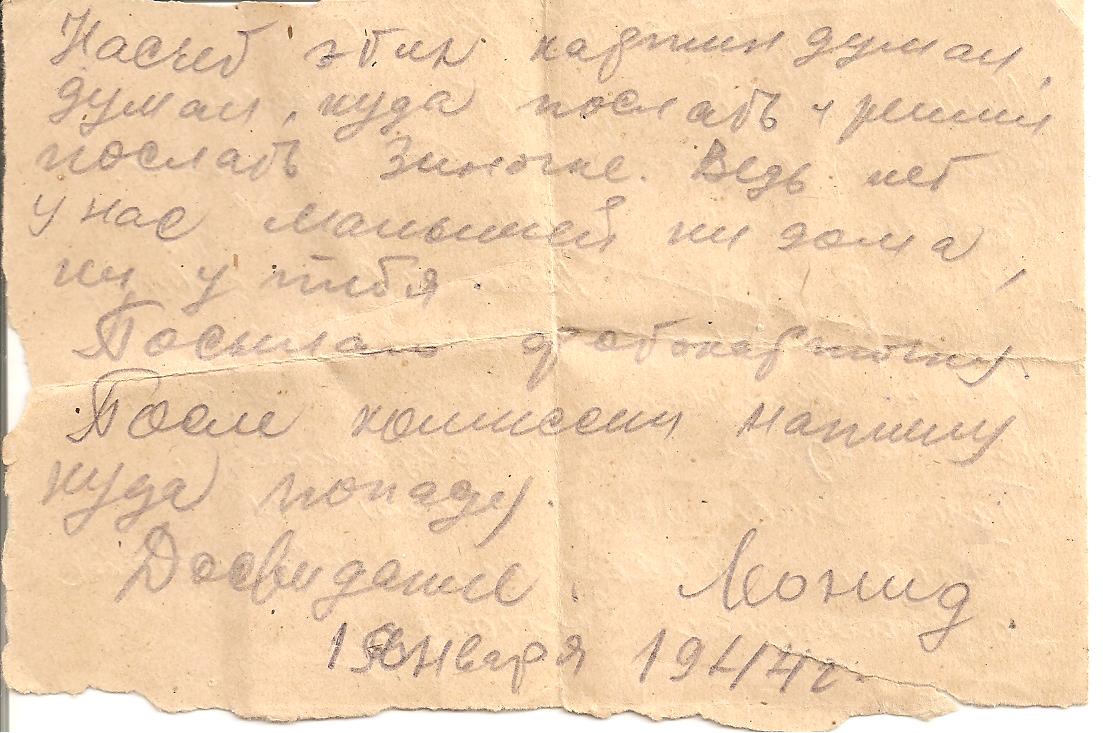 Насчет этих картин думал,
думал, куда послать и решил
послать Зиночке. Ведь нет
у нас малышей ни дома,
ни у тебя.
Посылаю фотокарточку.
После комиссии напишу
куда попаду.
Досвидание. Леонид.
января 1944г.